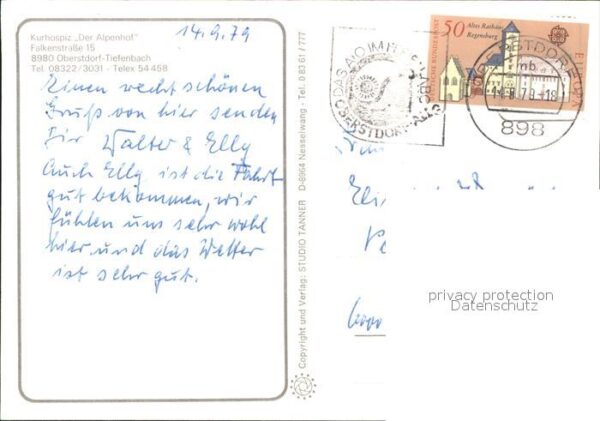 14.9.79
Kurhospiz „Der Alpenhof"
Falkenstraße 15
8980 Oberstdorf-Tiefenbach
Tel. 08322/3031 - Telex 54 458
Einen recht schönen
Gruß von hier senden
Dir Walter & Elly
Auch Elly ist die Fahrt
gut bekommen, wir
fühlen uns sehr wohl
hier und das Wetter
ist sehr gut.
Copyright und Verlag: STUDIO TANNER D-8964 Nesselwang - Tel. 0 83 61 / 777
50
Altes Rathaus
Regensburg
DEUTSCHE BUNDESPOST
EUROPA
OBERSTDORF
mb
898
privacy protection
Datenschutz